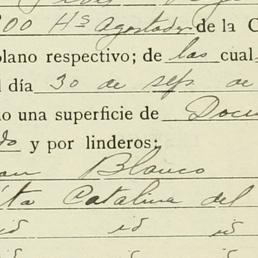 200 Hs agostadas de la C
plano respectivo; de las cual
l día 30 de sep. de
o una superficie de Docu
do y por linderos:
an Blanco
ta Catalina del
id id id